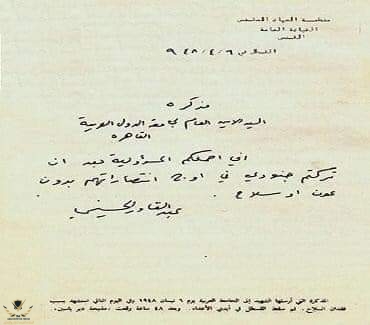 منظمة الجهاد المقدس
القيادة العامة
القدس
القدس في ٦/٤/٩٤٨
مذكرة
السيد الامين العام لجامعة الدول العربية
القاهرة
اني احملكم المسؤولية بعد ان
تركتم جنودي في اوج انتصاراتهم بدون
عون او سلاح .
عبد القادر الحسيني
المذكرة التي أرسلها الشهيد إلى الجامعة العربية يوم ٦ نيسان ١٩٤٨ وفي اليوم التالي استشهد بسبب
فقدان السلاح. ثم سقط القسطل في أيدي الأعداء. وبعد ٤٨ ساعة وقعت «مذبحة دير ياسين».